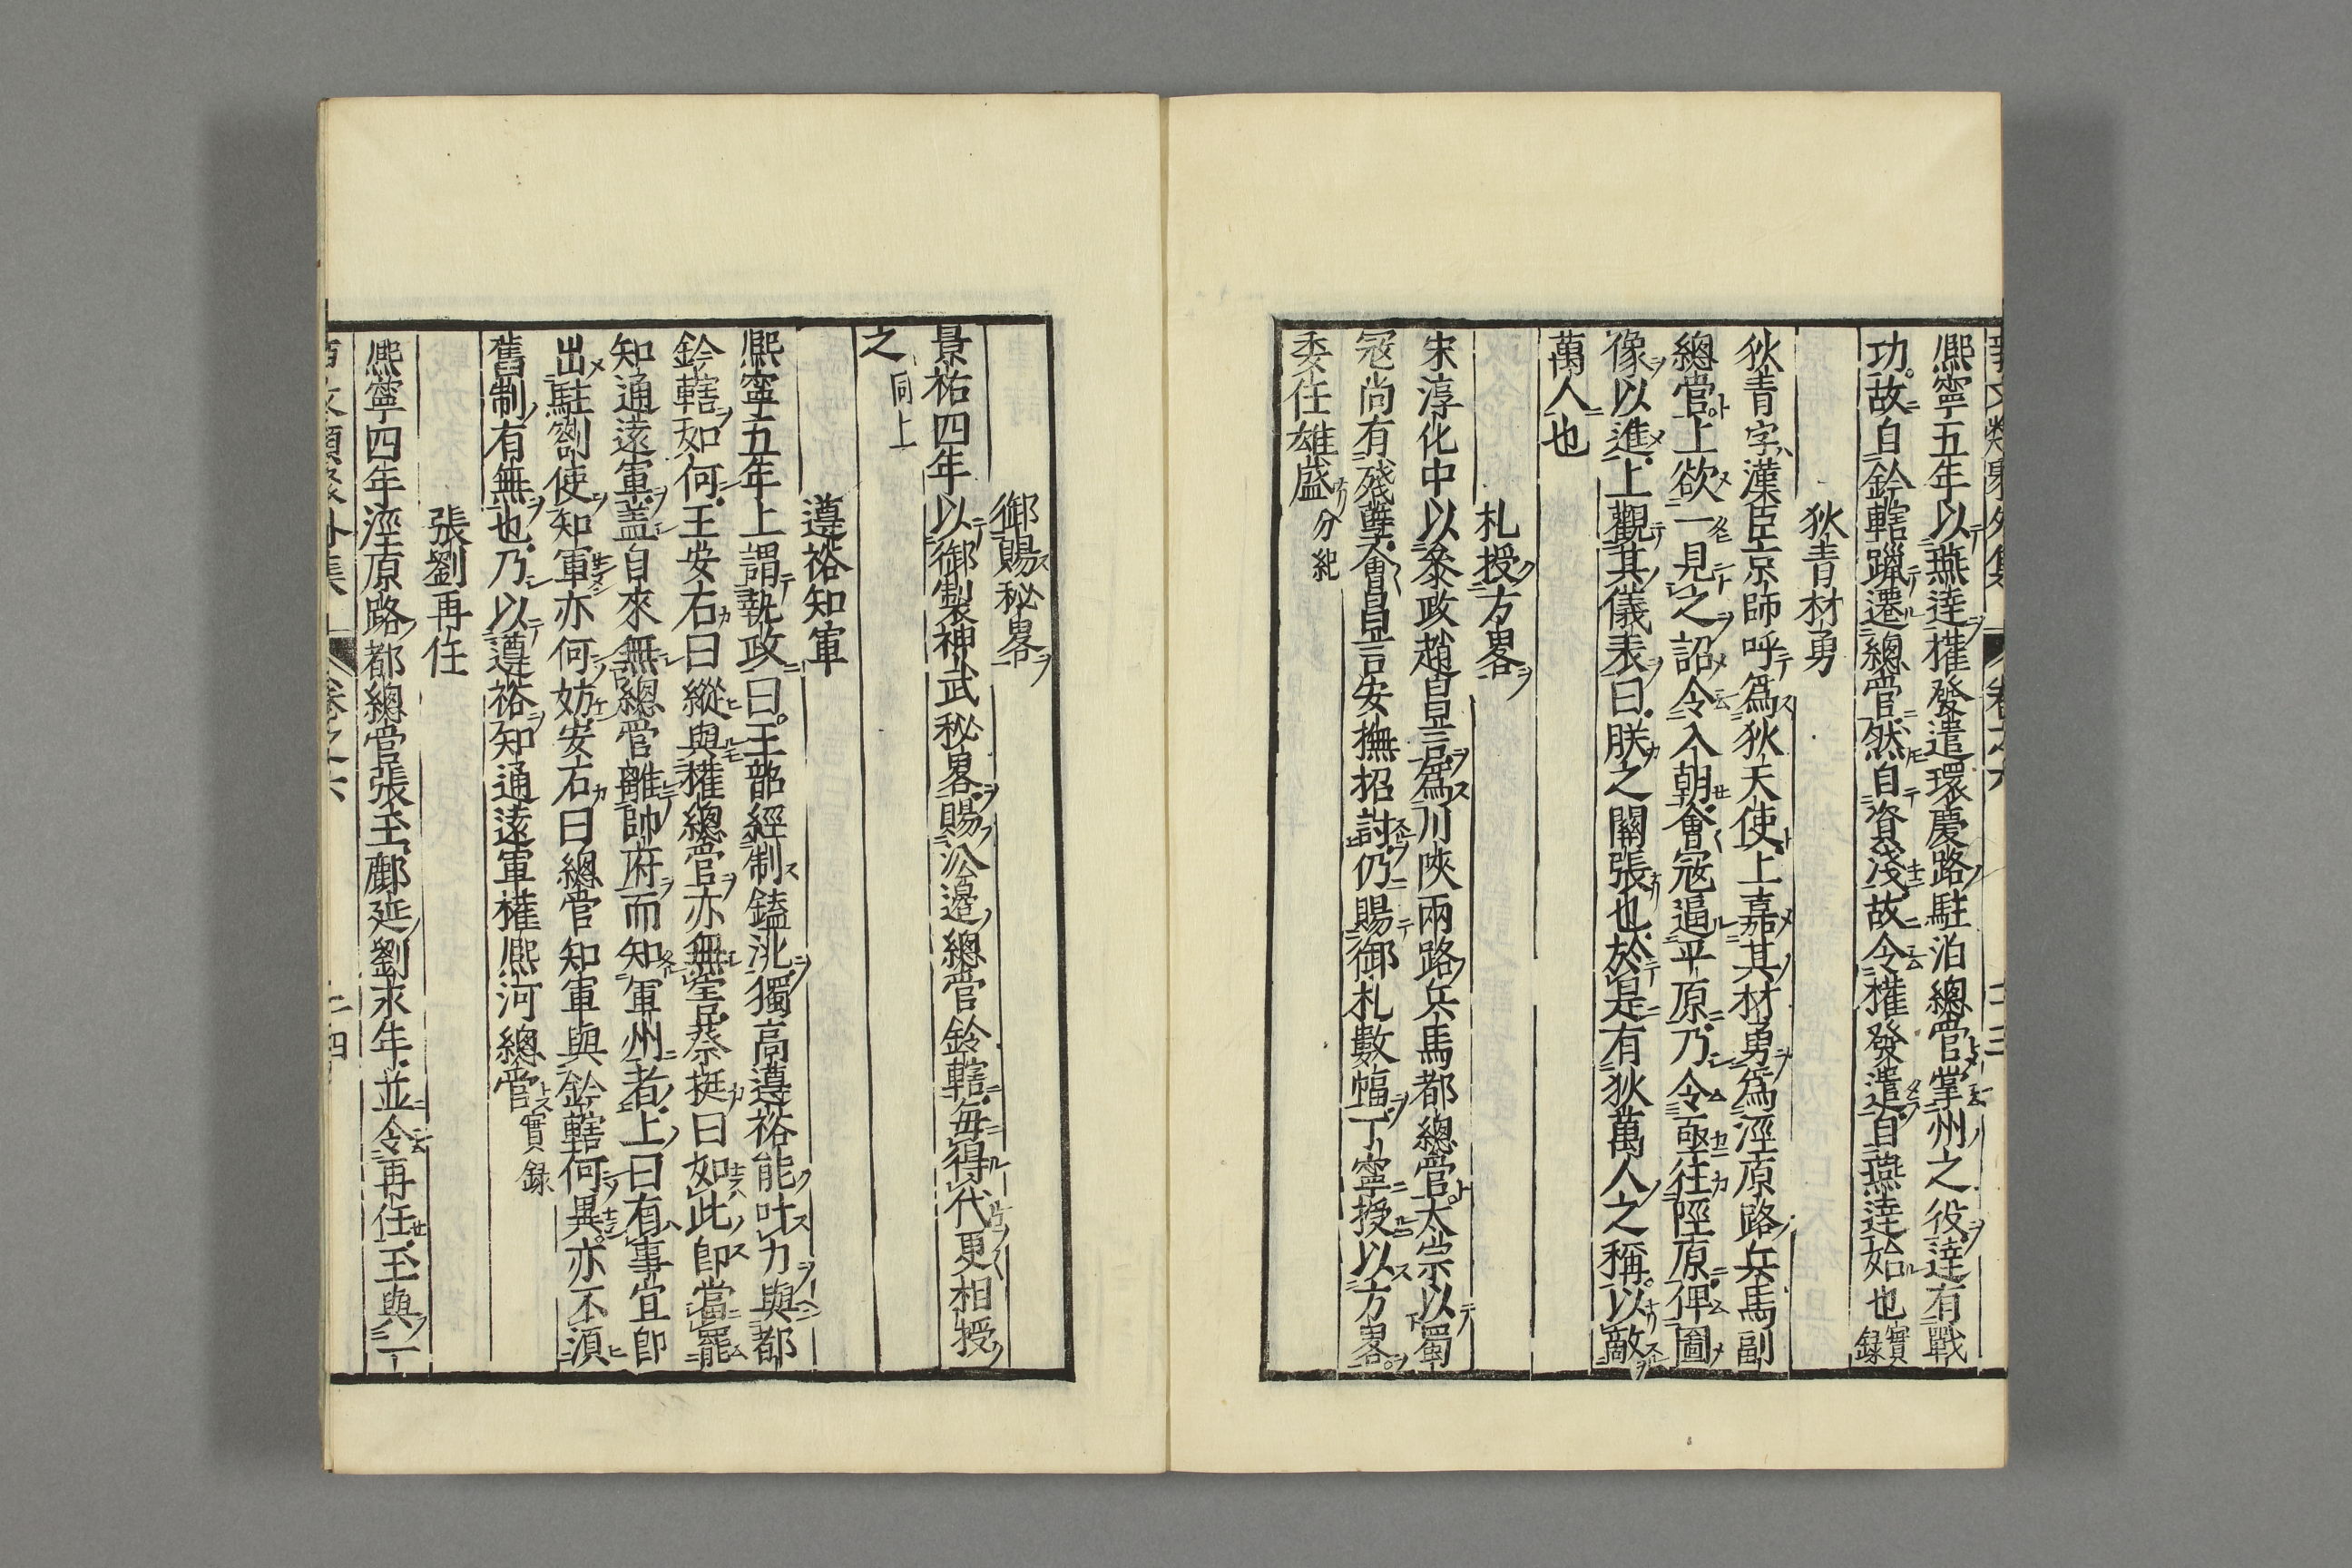 熈寧五年以燕逹權發遣環慶路駐泊總管掌州之役逹有戰
功故自鈐轄躐遷總管然自資淺故令權發遣自燕逹始也實録
狄青材勇
狄青字漢臣京師呼爲狄天使上嘉其材勇爲涇原路兵馬副
總管上欲一見之詔令入朝會冦逼平原乃令亟往陘原俾圖
像以進上觀其儀表曰朕之關張也於是有狄萬人之稱以敵
萬人也
札授方畧
宋淳化中以叅政趙昌言爲川陜兩路兵馬都總管太宗以蜀
冦尚有殘孽會昌言安撫招討仍賜御札數幅丁寧授以方畧
委任雄盛分紀
御賜秘畧
景祐四年以御製神武秘畧賜㳂邉總管鈴轄毎得代更相授
之同上
遵裕知軍
熈寧五年上謂執政曰王韶經制鎑洮獨高遵裕能叶力與都
鈐轄如何王安石曰縱與權總管亦無害蔡挺曰如此卽當罷
知通遠軍盖自來無總管離帥府而知軍州者上曰有事宜卽
出駐劄使知軍亦何妨安石曰總管知軍與鈐轄何異亦不須
舊制有無也乃以遵裕知通遠軍權熈河總管實録
張劉再任
熈寧四年涇原路都總管張玉鄜延劉求年並令再任玉與一
卷之六
二四